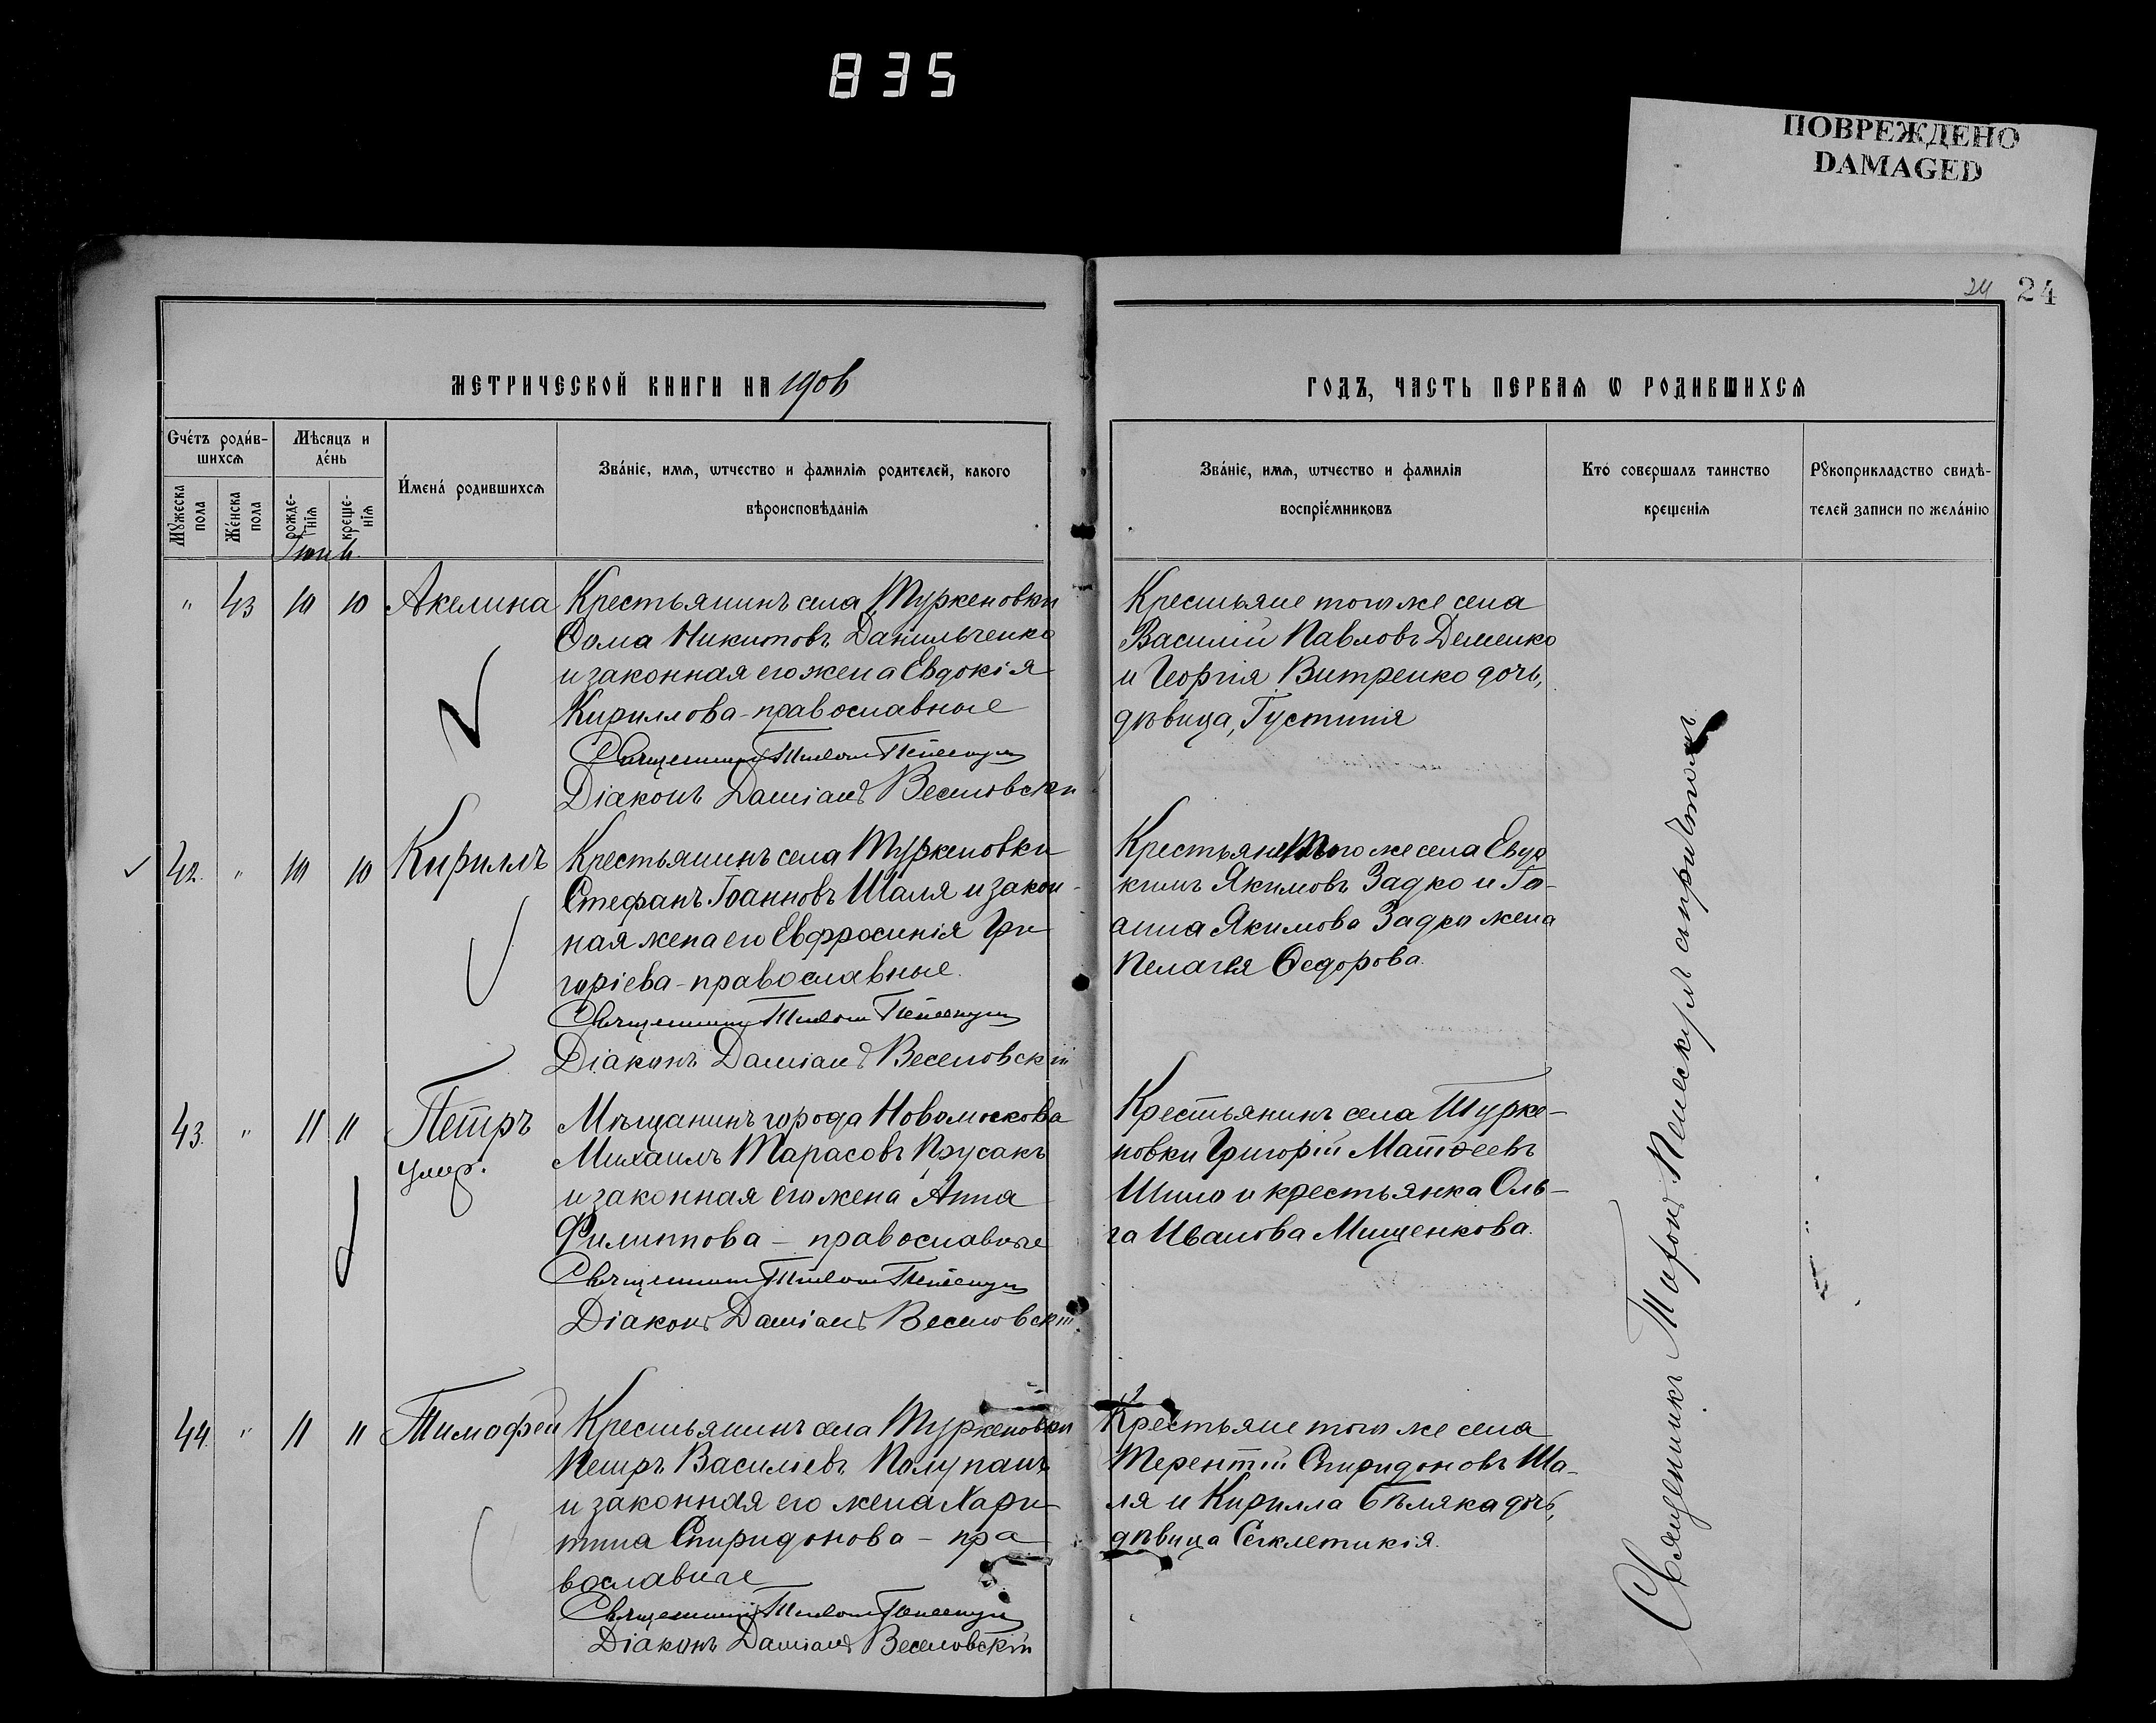 835
ПОВРЕЖДЕНО
DAMAGED
24 24
МЕТРИЧЕСКОЙ КНИГИ НА 1906
ГОДЪ, ЧАСТЬ ПЕРВАѦ Ѡ РОДИВШИХСѦ
Счетъ родив-
шихсѧ
Мужеска
пола
Женска
пола
Мѣсяцъ и
день
рожде-
нїѧ
креще-
нїѧ
Имена родившихсѧ
Званїе, имѧ, ѡтчество и фамилїѧ родителей, какого
вѣроисповѣданїѧ
Званїе, имѧ, ѡтчество и фамилїѧ
воспрїемниковъ
Кто совершалъ таинство
крещенїѧ
Рукоприкладство свидѣ-
телей записи по желанїю
" 43 10 10 Акелина
Крестьянинъ села Туркеновки
Ѳома Никитовъ Данильченко
и законная его жена Евдокія
Кириллова - православные
Діаконъ Даміанъ Веселовскій
Крестьяне того же села
Василій Павловъ Деменко
и Георгія Витренко дочь,
дѣвица, Іустинія
42. " 10 10 Кириллъ
Крестьянинъ села Туркеновки
Стефанъ Іоанновъ Шаля и закон-
ная жена его Евфросинія Гри-
горіева - православные.
Діаконъ Даміанъ Веселовскій
Крестьяне того же села Евдо
кимъ Якимовъ Задко и Іо-
анна Якимова Задка жена
Пелагея Ѳедорова.
43. " 11 11 Петръ
умер.
Мѣщанинъ города Новомоскова
Михаилъ Тарасовъ Прусакъ
и законная его жена Анна
Филиппова - православные
Діаконъ Даміанъ Веселовскій
Крестьянинъ села Турке-
новки Григорій Матѳеевъ
Шило и крестьянка Оль-
га Иванова Мищенкова.
44. " 11 11 Тимофей
Крестьянинъ села Туркеновки
Петръ Василіевъ Полупанъ
и законная его жена Хари-
тина Спиридонова - пра
вославные
Діаконъ Даміанъ Веселовскій
Крестьяне того же села
Терентій Спиридоновъ Ша-
ля и Кирилла Бѣляка дочь,
дѣвица Секлетикія.
Священникъ Тихонъ